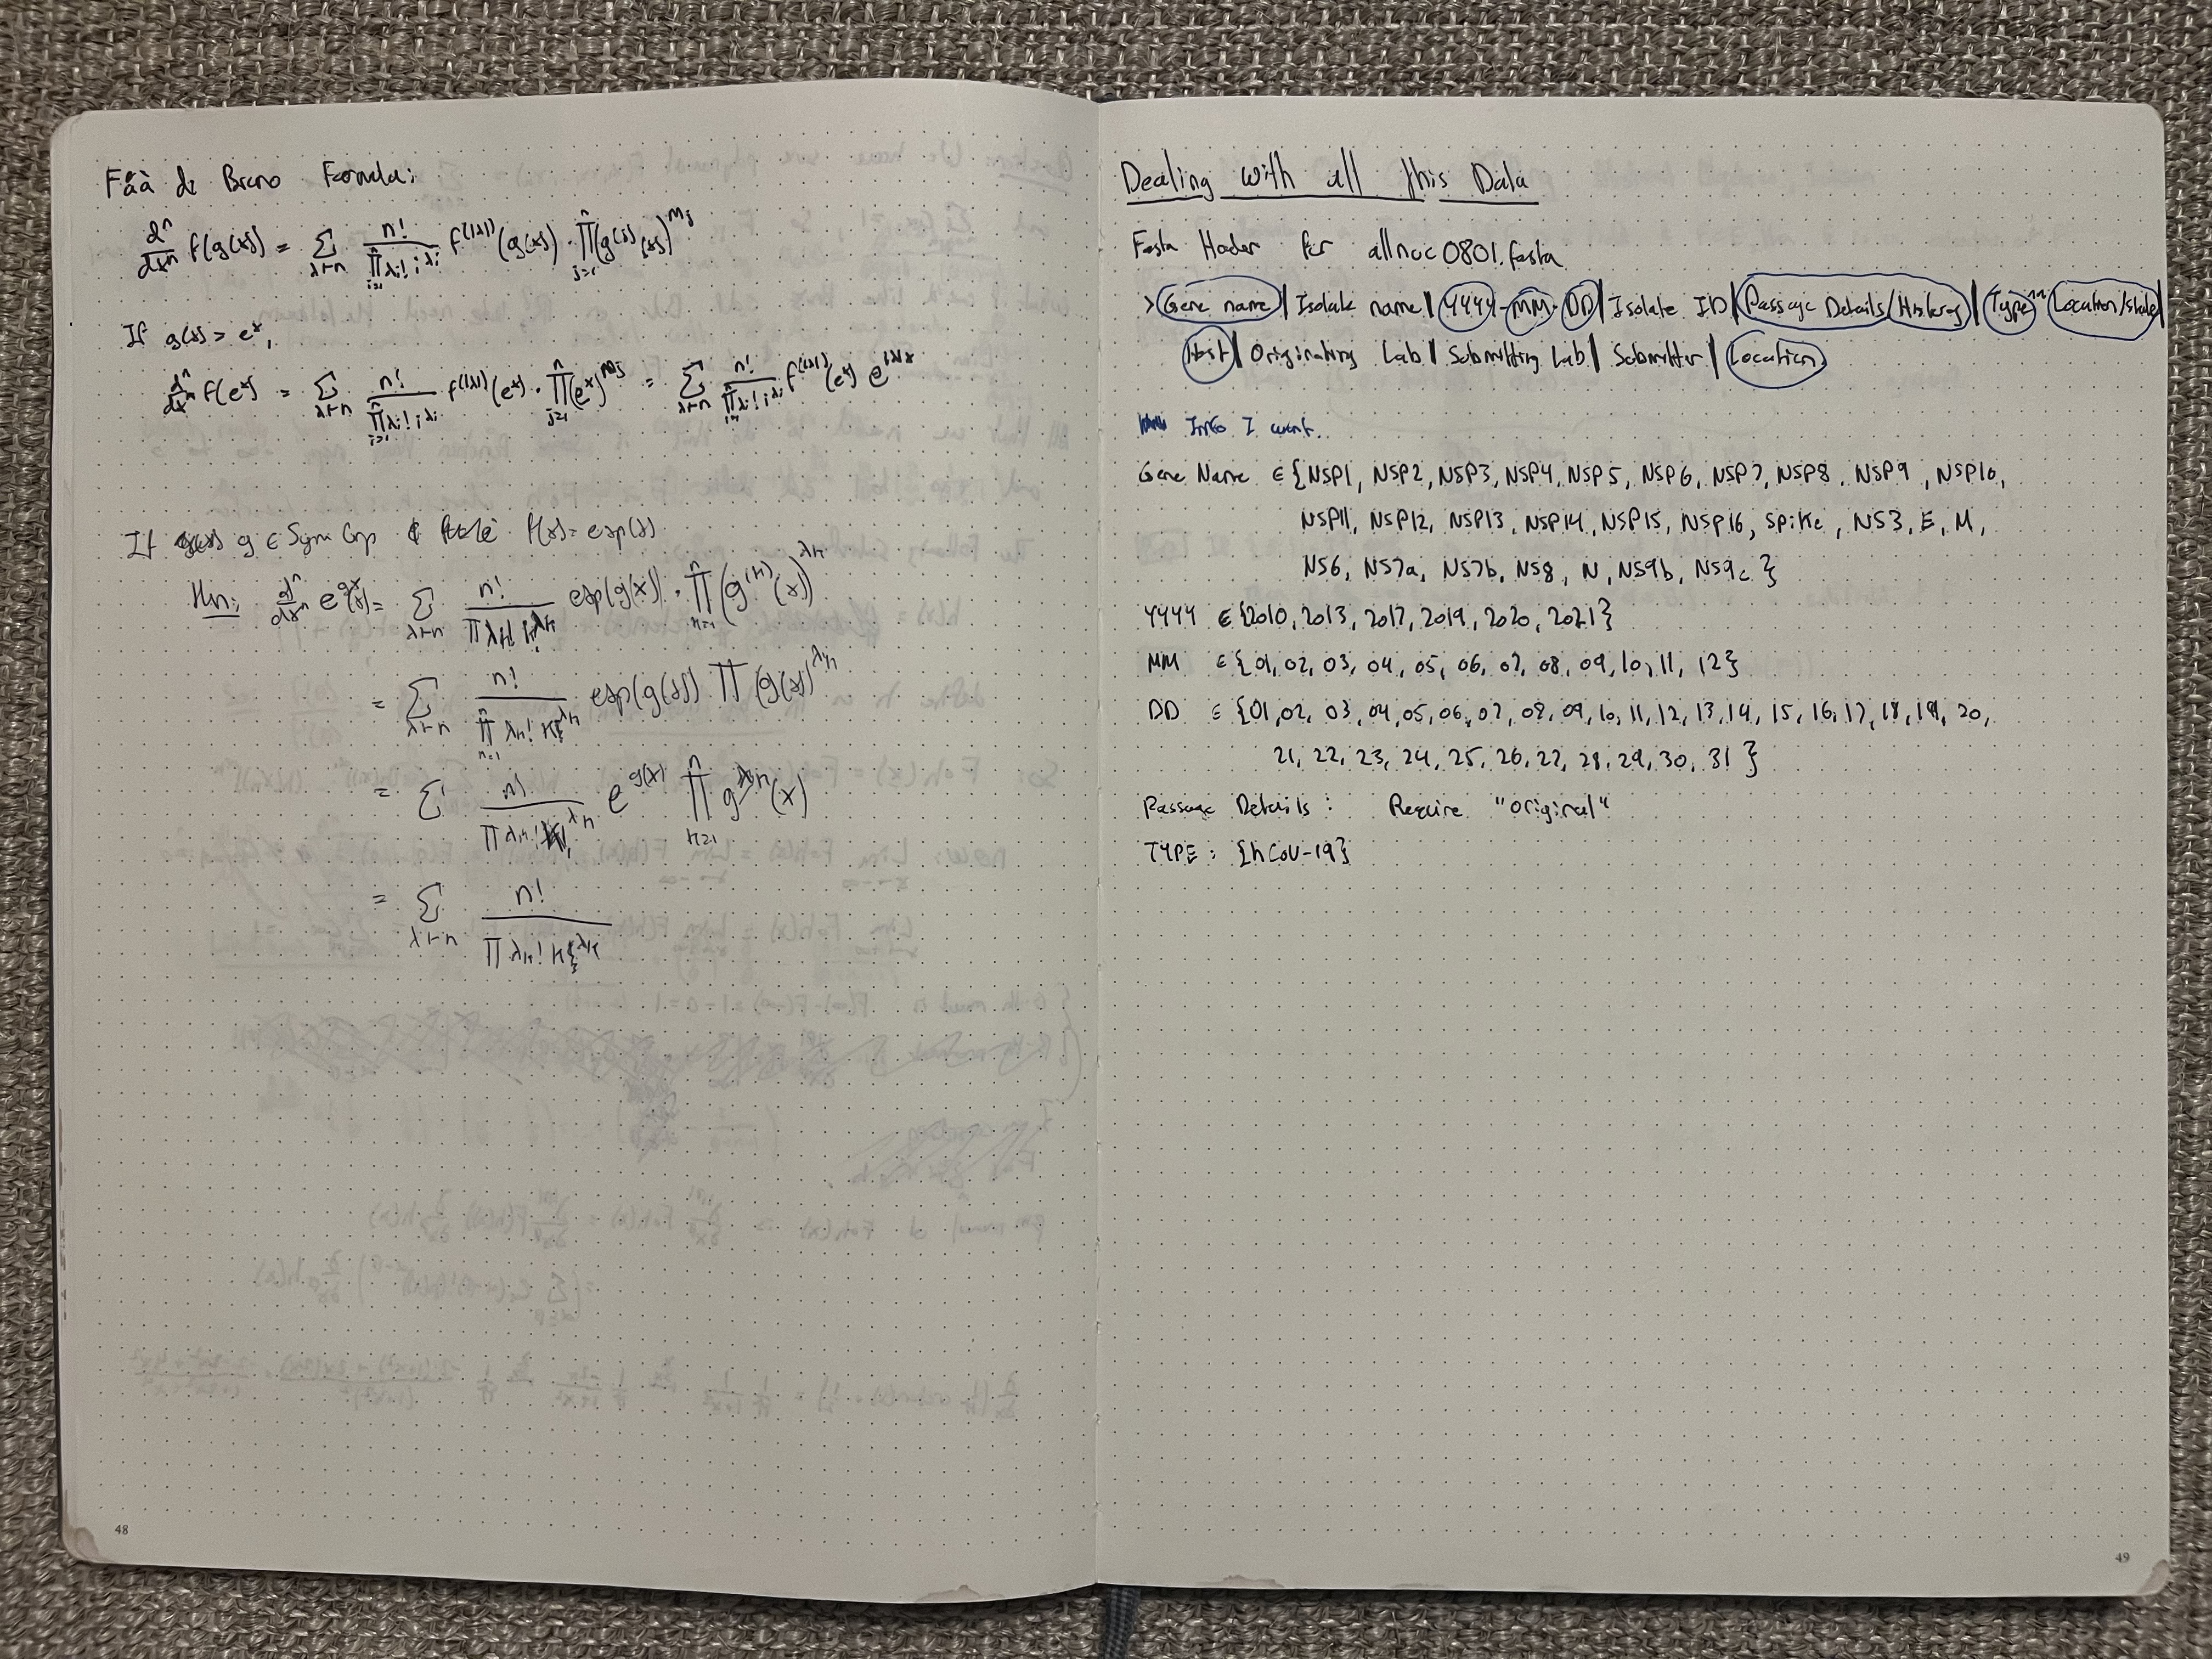 Fàà de Bruno Formula:
dⁿ/dxⁿ f(g(x)) = Σ_{λ⊢n} n!/∏_{i=1}^n λi! i^{λi} f^{(|λ|)}(g(x)) · ∏_{j=1}^n (g^{(j)}(x))^{mj}
If g(x) = eˣ,
dⁿ/dxⁿ f(eˣ) = Σ_{λ⊢n} n!/∏_{i=1}^n λi! i^{λi} f^{(|λ|)}(eˣ) · ∏_{j=1}^n (eˣ)^{mj} = Σ_{λ⊢n} n!/∏_{i=1}^n λi! i^{λi} f^{(|λ|)}(eˣ) e^{|λ|x}
If g ∈ Sym Grp & f(x) = exp(x)
Then: dⁿ/dxⁿ e^{g(x)} = Σ_{λ⊢n} n!/∏ λk! exp(g(x)) · ∏_{k=1}^n (g^{(k)}(x))^{λk}
= Σ_{λ⊢n} n!/∏_{k=1}^n λk! k^{λk} exp(g(x)) ∏ (g(x))^{λk}
= Σ n!/∏ λk! k^{λk} e^{g(x)} ∏_{k=1}^n g (x)
= Σ_{λ⊢n} n!/∏ λk! k^{λk}
48
Dealing with all this Data
Fasta Header for allnuc0801.fasta
>Gene name|Isolate name|YYYY-MM-DD|Isolate ID|Passage Details/History|Type^^Location/State|
Host|Originating Lab|Submitting Lab|Submitter|Location
Info I want..
Gene Name ∈ {NSP1, NSP2, NSP3, NSP4, NSP5, NSP6, NSP7, NSP8, NSP9, NSP10,
NSP11, NSP12, NSP13, NSP14, NSP15, NSP16, Spike, NS3, E, M,
NS6, NS7a, NS7b, NS8, N, NS9b, NS9c}
YYYY ∈ {2010, 2013, 2017, 2019, 2020, 2021}
MM ∈ {01, 02, 03, 04, 05, 06, 07, 08, 09, 10, 11, 12}
DD ∈ {01, 02, 03, 04, 05, 06, 07, 08, 09, 10, 11, 12, 13, 14, 15, 16, 17, 18, 19, 20,
21, 22, 23, 24, 25, 26, 27, 28, 29, 30, 31}
Passage Details: Require "original"
TYPE: {hCoV-19}
49